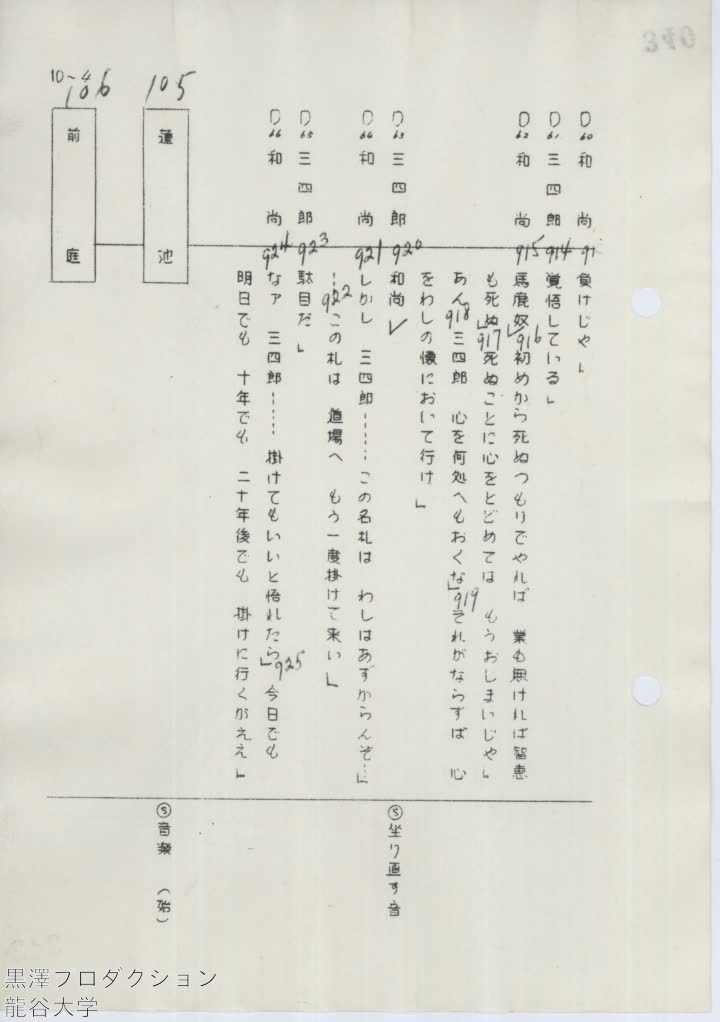 340
D60 和尚 91
負けじゃ」
D61 三四郎 914
覚悟している」
D62 和尚 915
馬鹿奴」916初めから死ぬつもりでやれば 業も無ければ智恵
も死ぬ」917死ぬごとに心をとどめては もうおしまいじゃ」
あん918三四郎 心を何処へもおくな」919それがならずば 心
をわしの懐において行け 」
D63 三四郎 920
和尚
D64 和尚 921
しかし 三四郎…… この名札は わしはあずからんぞ…」
…922この札は 道場へ もう一度掛けて来い 」
D65 三四郎 923
駄目だ 」
D66 和尚 924
なァ 三四郎…… 掛けてもいいと悟れたら」925今日でも
明日でも 十年でも 二十年後でも 掛けに行くがええ 」
105
蓮池
10〜4
106
前庭
Ⓢ坐り直す音
Ⓢ音楽 (始)
黒澤プロダクション
龍谷大学